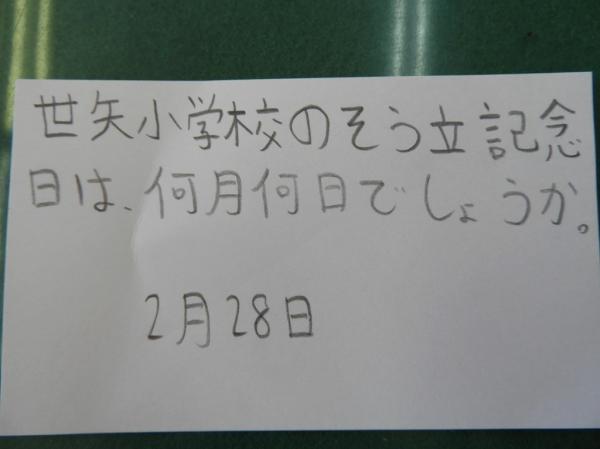 世矢小学校のそう立記念
日は、何月何日でしょうか。
2月28日